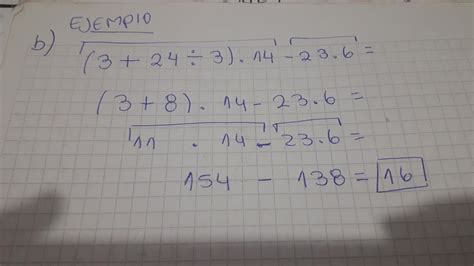 EJEMPlO
b) (3 + 24 ÷ 3) . 14 - 23.6 =
(3 + 8) . 14 - 23.6 =
11 . 14 - 23.6 =
154 - 138 = 16